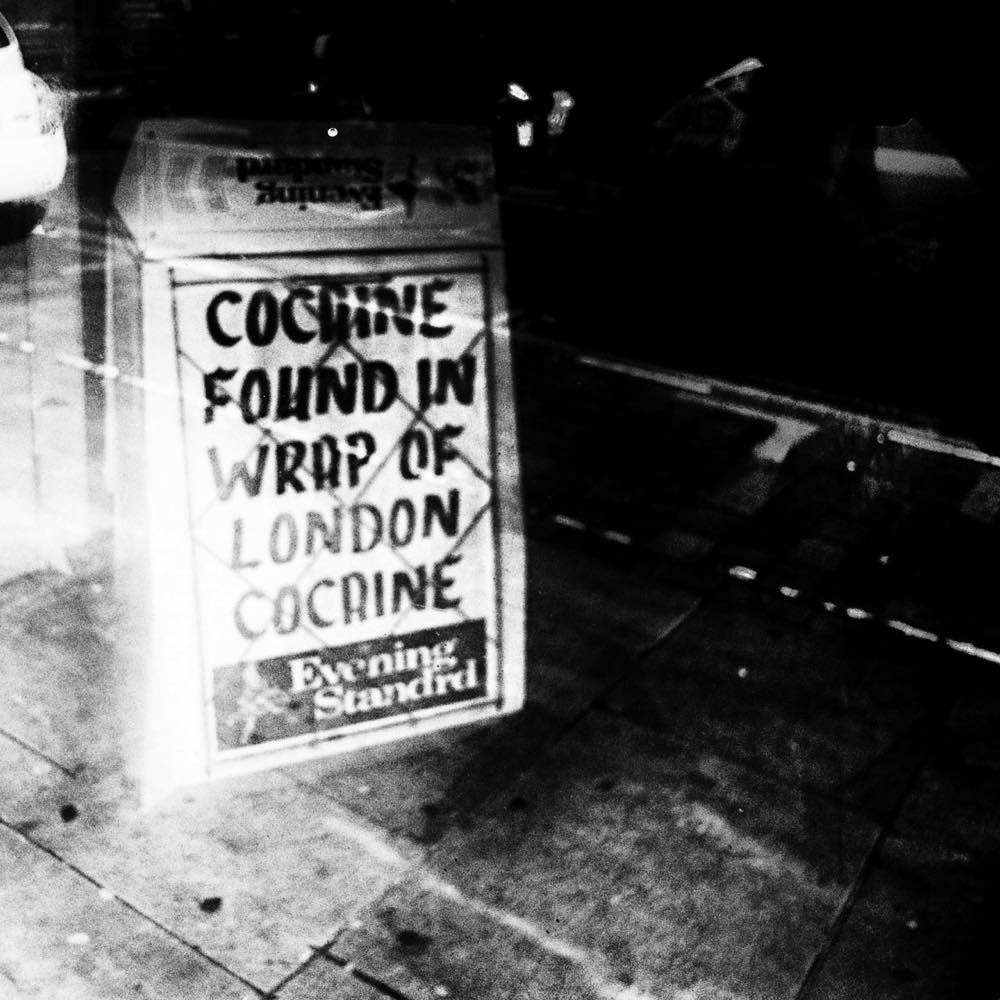 Evening
Standard
COCAINE
FOUND IN
WRAP OF
LONDON
COCAINE
Evening
Standard